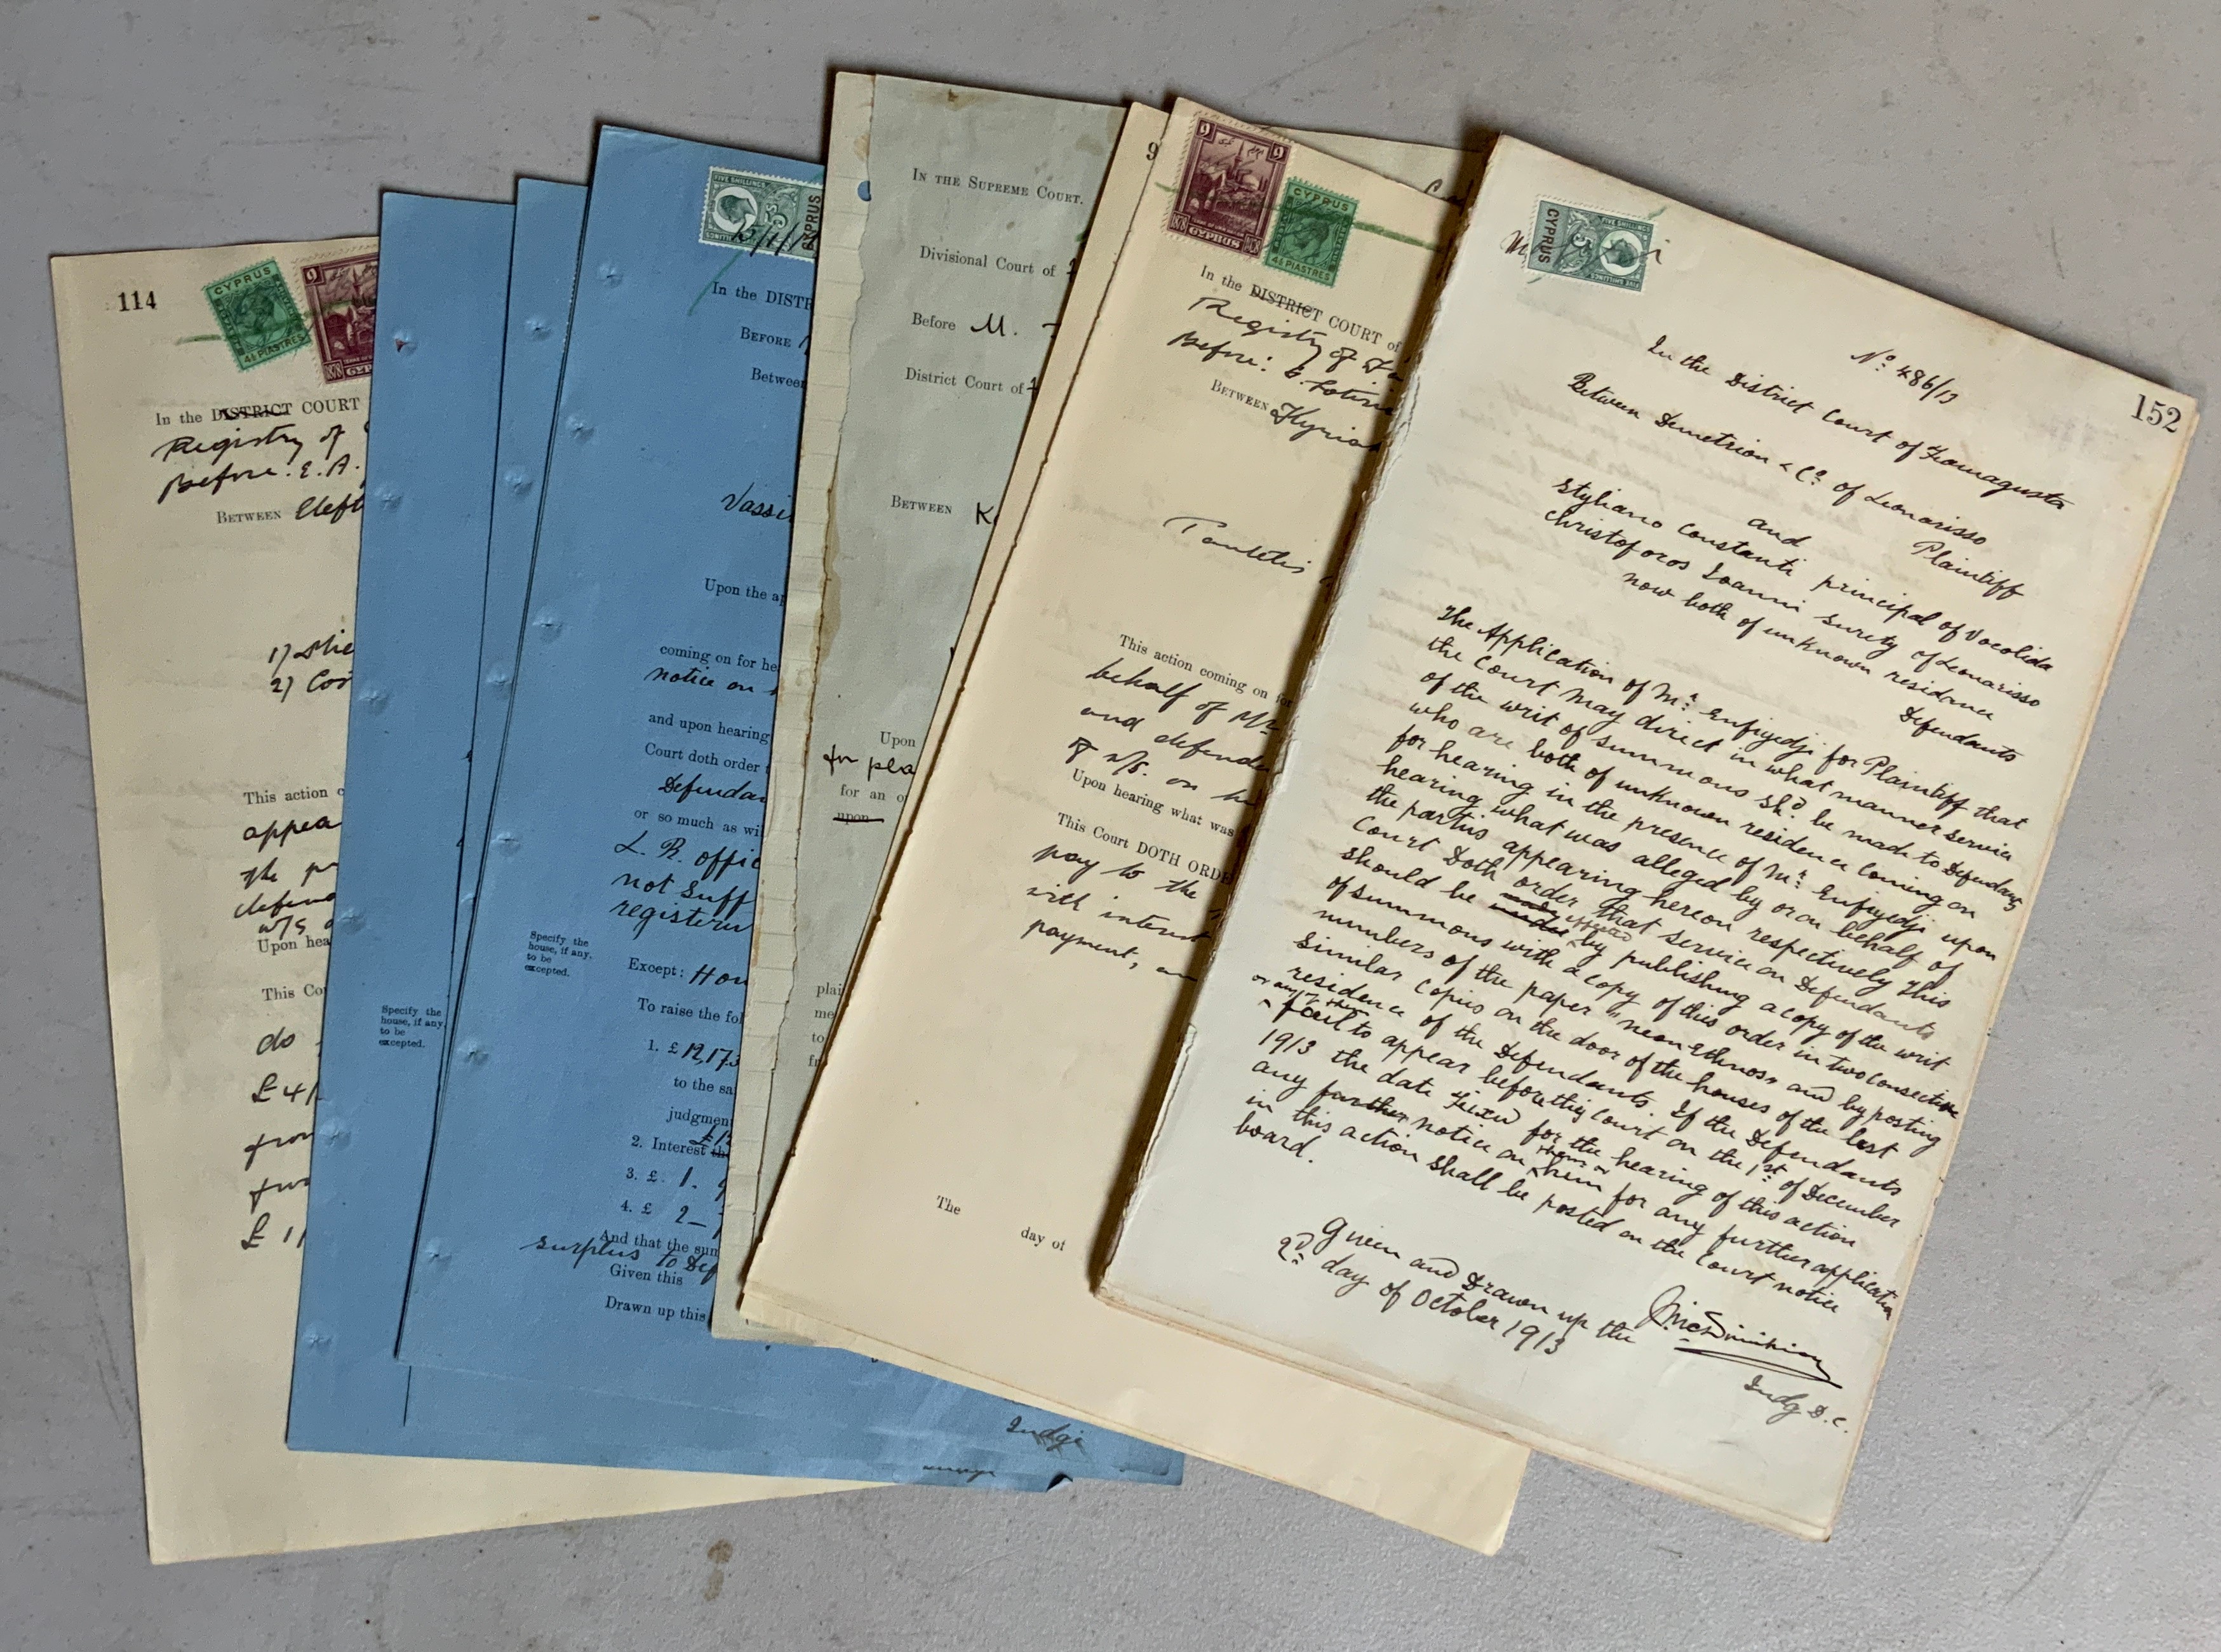 114
CYPRUS
4½ PIASTRES
9
1878
In the DISTRICT COURT
Registry of
Before: E. A.
BETWEEN Eleft
1)
2) Cos
This action c
appea
the pr
defend
w/s o
Upon hea
This Co
do
£4/
from
£ 1/
Specify the
house, if any,
to be
excepted.
Specify the
house, if any,
to be
excepted.
FIVE SHILLINGS
CYPRUS
In the DISTR
BEFORE
Between
Vassi
Upon the ap
coming on for he
notice on
and upon hearing
Court doth order
Defendan
or so much as wi
L. R. offic
not suff
register
Except: Hou
To raise the fol
1. £12,17
to the sa
judgmen
2. Interest
3. £. 1. 9
4. £ 2
And that the sum
surplus to Def
Given this
Drawn up this
Judge
IN THE SUPREME COURT.
Divisional Court of
Before M.
District Court of
BETWEEN K
Upon
for pla
for an o
upon
plai
me
to
fr
9
9 9
1878 CYPRUS
CYPRUS
4½ PIASTRES
In the DISTRICT COURT of
Registry of Fa
Before:
BETWEEN Kyria
This action coming on for
behalf of Mr
and defenda
Upon hearing what was
This Court DOTH ORDE
pay to the
with interest
payment, an
The day of
FIVE SHILLINGS
CYPRUS
152
No 486/13
In the District Court of Famagusta
Between Demetrion & Co of Leonarisso
Plaintiff
and
Styliano Constanti principal of Vocolida
Christoforos Ioanni surety of Leonarisso
now both of unknown residence
Defendants
The Application of Mr Enfiyedji for Plaintiff that
the Court may direct in what manner service
of the writ of summons shd be made to Defendants
who are both of unknown residence coming on
for hearing in the presence of Mr Enfiyedji upon
hearing what was alleged by or on behalf of
the parties appearing hereon respectively This
Court Doth order that service on Defendants
should be effected by publishing a copy of the writ
of summons with a copy of this order in two consecutive
numbers of the paper "neon Ethnos" and by posting
similar copies on the door of the houses of the last
residence of the Defendants. If the Defendants
or any of them fail to appear before this Court on the 1st of December
1913 the date fixed for the hearing of this action
any further notice on them or him for any further application
in this action shall be posted on the Court notice
board.
Given and Drawn up the
2d day of October 1913
Judg D.C.